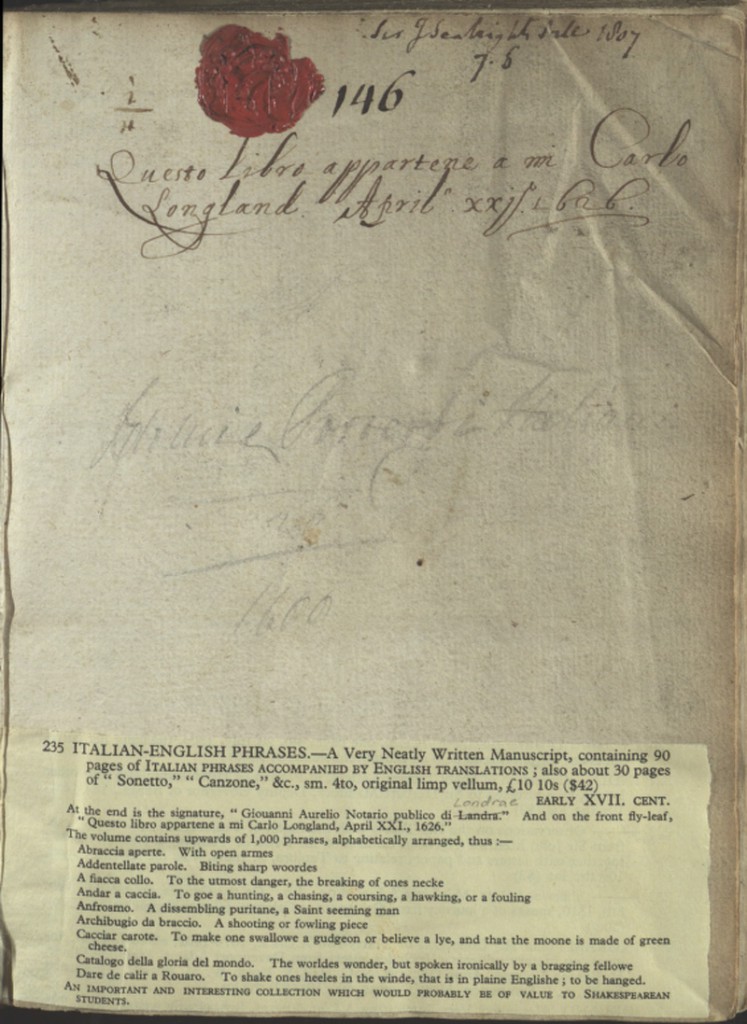 Sir J Seabright sale 1807
7.6
146
Questo libro appartene a mi Carlo
Longland. April xxij. 1626.
1600
235 ITALIAN-ENGLISH PHRASES.—A Very Neatly Written Manuscript, containing 90
pages of ITALIAN PHRASES ACCOMPANIED BY ENGLISH TRANSLATIONS ; also about 30 pages
of “ Sonetto,” “ Canzone,” &c., sm. 4to, original limp vellum, £10 10s ($42)
EARLY XVII. CENT.
Londrae
At the end is the signature, “ Giouanni Aurelio Notario publico di Landra.” And on the front fly-leaf,
“ Questo libro appartene a mi Carlo Longland, April XXI., 1626.”
The volume contains upwards of 1,000 phrases, alphabetically arranged, thus :—
Abraccia aperte. With open armes
Addentellate parole. Biting sharp woordes
A fiacca collo. To the utmost danger, the breaking of ones necke
Andar a caccia. To goe a hunting, a chasing, a coursing, a hawking, or a fouling
Anfrosmo. A dissembling puritane, a Saint seeming man
Archibugio da braccio. A shooting or fowling piece
Cacciar carote. To make one swallowe a gudgeon or believe a lye, and that the moone is made of green
cheese.
Catalogo della gloria del mondo. The worldes wonder, but spoken ironically by a bragging fellowe
Dare de calir a Rouaro. To shake ones heeles in the winde, that is in plaine Englishe ; to be hanged.
AN IMPORTANT AND INTERESTING COLLECTION WHICH WOULD PROBABLY BE OF VALUE TO SHAKESPEAREAN
STUDENTS.